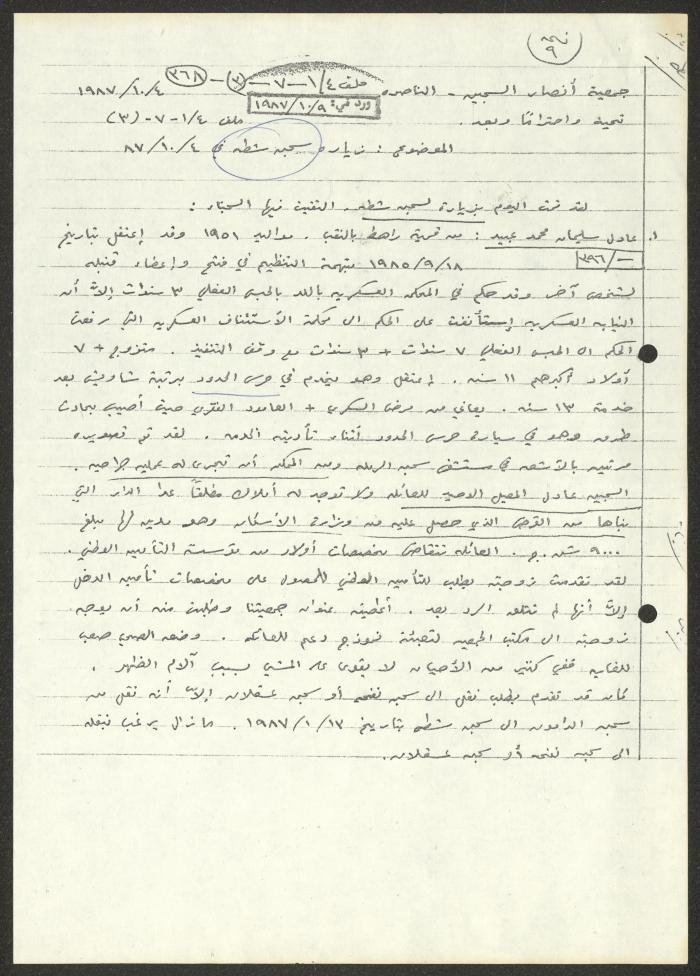 نسخة
٩
ملف ١/٤-٧-(٣)-(٣٦٨)
ورد في: ١٩٨٧/١٠/٩
جمعية أنصار السجين - الناصره ١٩٨٧/١٠/٤
تحية واحترامًا وبعد. ملف ١/٤-٧-(٣)
الموضوع: زيارة سجن شطه في ٨٧/١٠/٤
لقد قمت اليوم بزيارة لسجن شطه. التقيت فيها السجناء:
١. عادل سليمان محمد عبيد: من قرية راهط بالنقب. مواليد ١٩٥١ وقد إعتقل بتاريخ
٣٩٦/-
١٩٨٥/٩/١٨ بتهمة التنظيم في فتح وإعطاء قنبله
لشخص آخر. وقد حكم في المحكمه العسكريه باللد بالحبس الفعلي ٣ سنوات إلاّ أن
النيابه العسكريه إستأنفت على الحكم الى محكمة الأستئناف العسكريه التي رفعت
الحكم الى الحبس الفعلي ٧ سنوات + ٣ سنوات مع وقف التنفيذ. متزوج + ٧
أولاد أكبرهم ١١ سنه. إعتقل وهو يخدم في حرس الحدود برتبة شاويش بعد
خدمة ١٣ سنه. يعاني من مرض السكري + العامود الفقري حيث أصيب بحادث
طرق وهو في سيارة حرس الحدود أثناء تأديته الخدمه. لقد تم تصويره
مرتين بالأشعه في مستشفى سجن الرمله ومن الممكن أن تجرى له عمليه جراحيه.
السجين عادل المعيل الوحيد للعائله ولا توجد له أملاك مطلقاً عدا الدار التي
بناها من القرض الذي حصل عليه من وزارة الأسكان وهو مدين لها مبلغ
٩٠٠٠ شك.ج. العائله تتقاضى مخصصات أولاد من مؤسسة التأمين الوطني.
لقد تقدمت زوجته بطلب للتأمين الوطني للحصول على مخصصات تأمين الدخل
إلاّ أنها لم تتلق الرد بعد. أعطيته عنوان جمعيتنا وطلبت منه أن يوجه
زوجته الى مكتب الجمعيه لتعبئة نموذج دعم للعائله. وضعه الصحي صعب
للغايه ففي كثير من الأحيان لا يقوى على المشي بسبب آلام الظهر.
كان قد تقدم بطلب نقل الى سجن نفحه أو سجن عسقلان إلاّ أنه نقل من
سجن الدامون الى سجن شطه بتاريخ ١٩٨٧/١/١٣. ما زال يرغب بنقله
الى سجن نفحه أو سجن عسقلان.